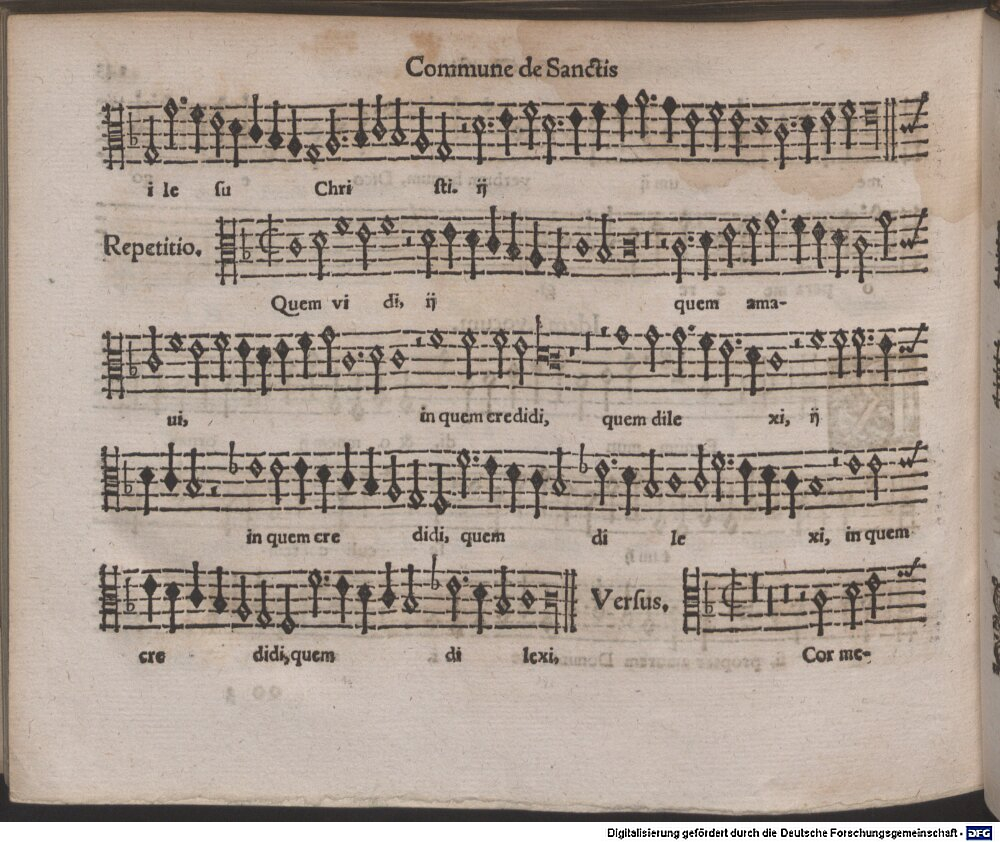 Commune de Sanctis
i le su Chri sti. ij
Repetitio.
Quem vi di, ij quem ama-
ui, in quem credidi, quem dile xi, ij
in quem cre didi, quem di le xi, in quem
Versus.
cre didi, quem di lexi, Cor me-
Digitalisierung gefördert durch die Deutsche Forschungsgemeinschaft - DFG